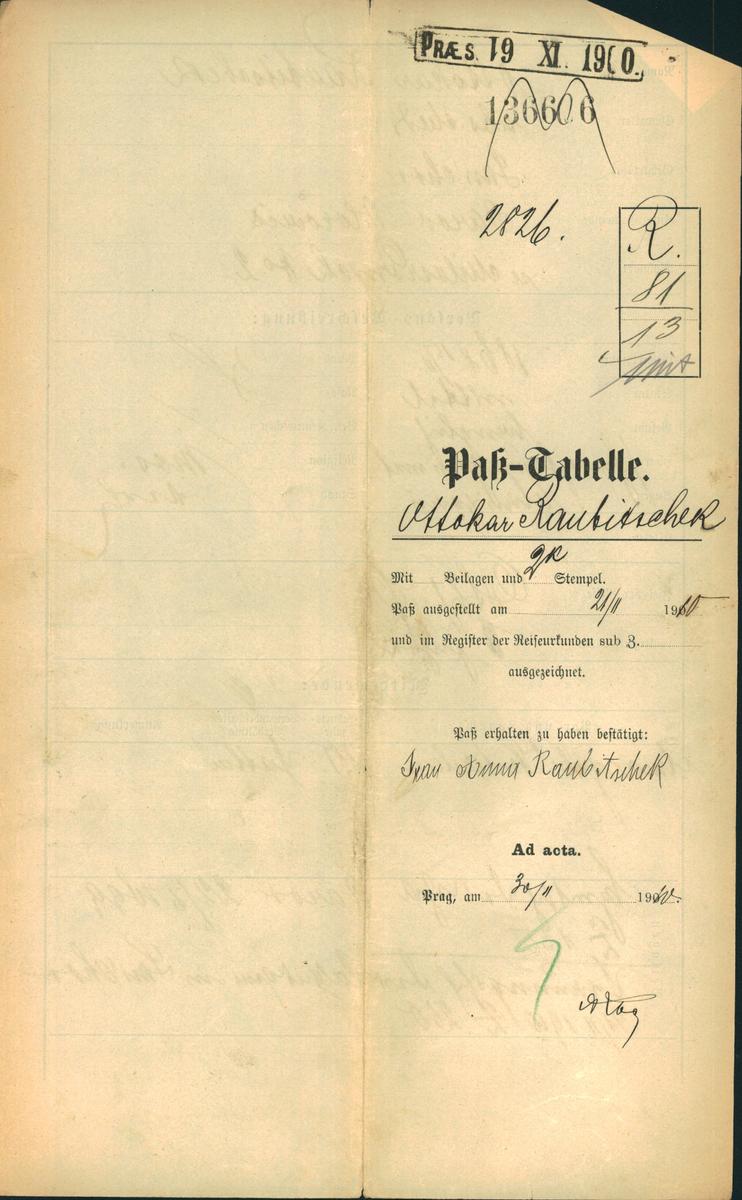 PRÆS. 19 XI. 1900.
136606
2826.
R.
81
13
Paß-Tabelle.
Ottokar Raubitschek
Mit Beilagen und 2K Stempel.
Paß ausgestellt am 21/11 1900
und im Register der Reiseurkunden sub Z.
ausgezeichnet.
Paß erhalten zu haben bestätigt:
Frau Anna Raubitschek
Ad acta.
Prag, am 30/11 1900.